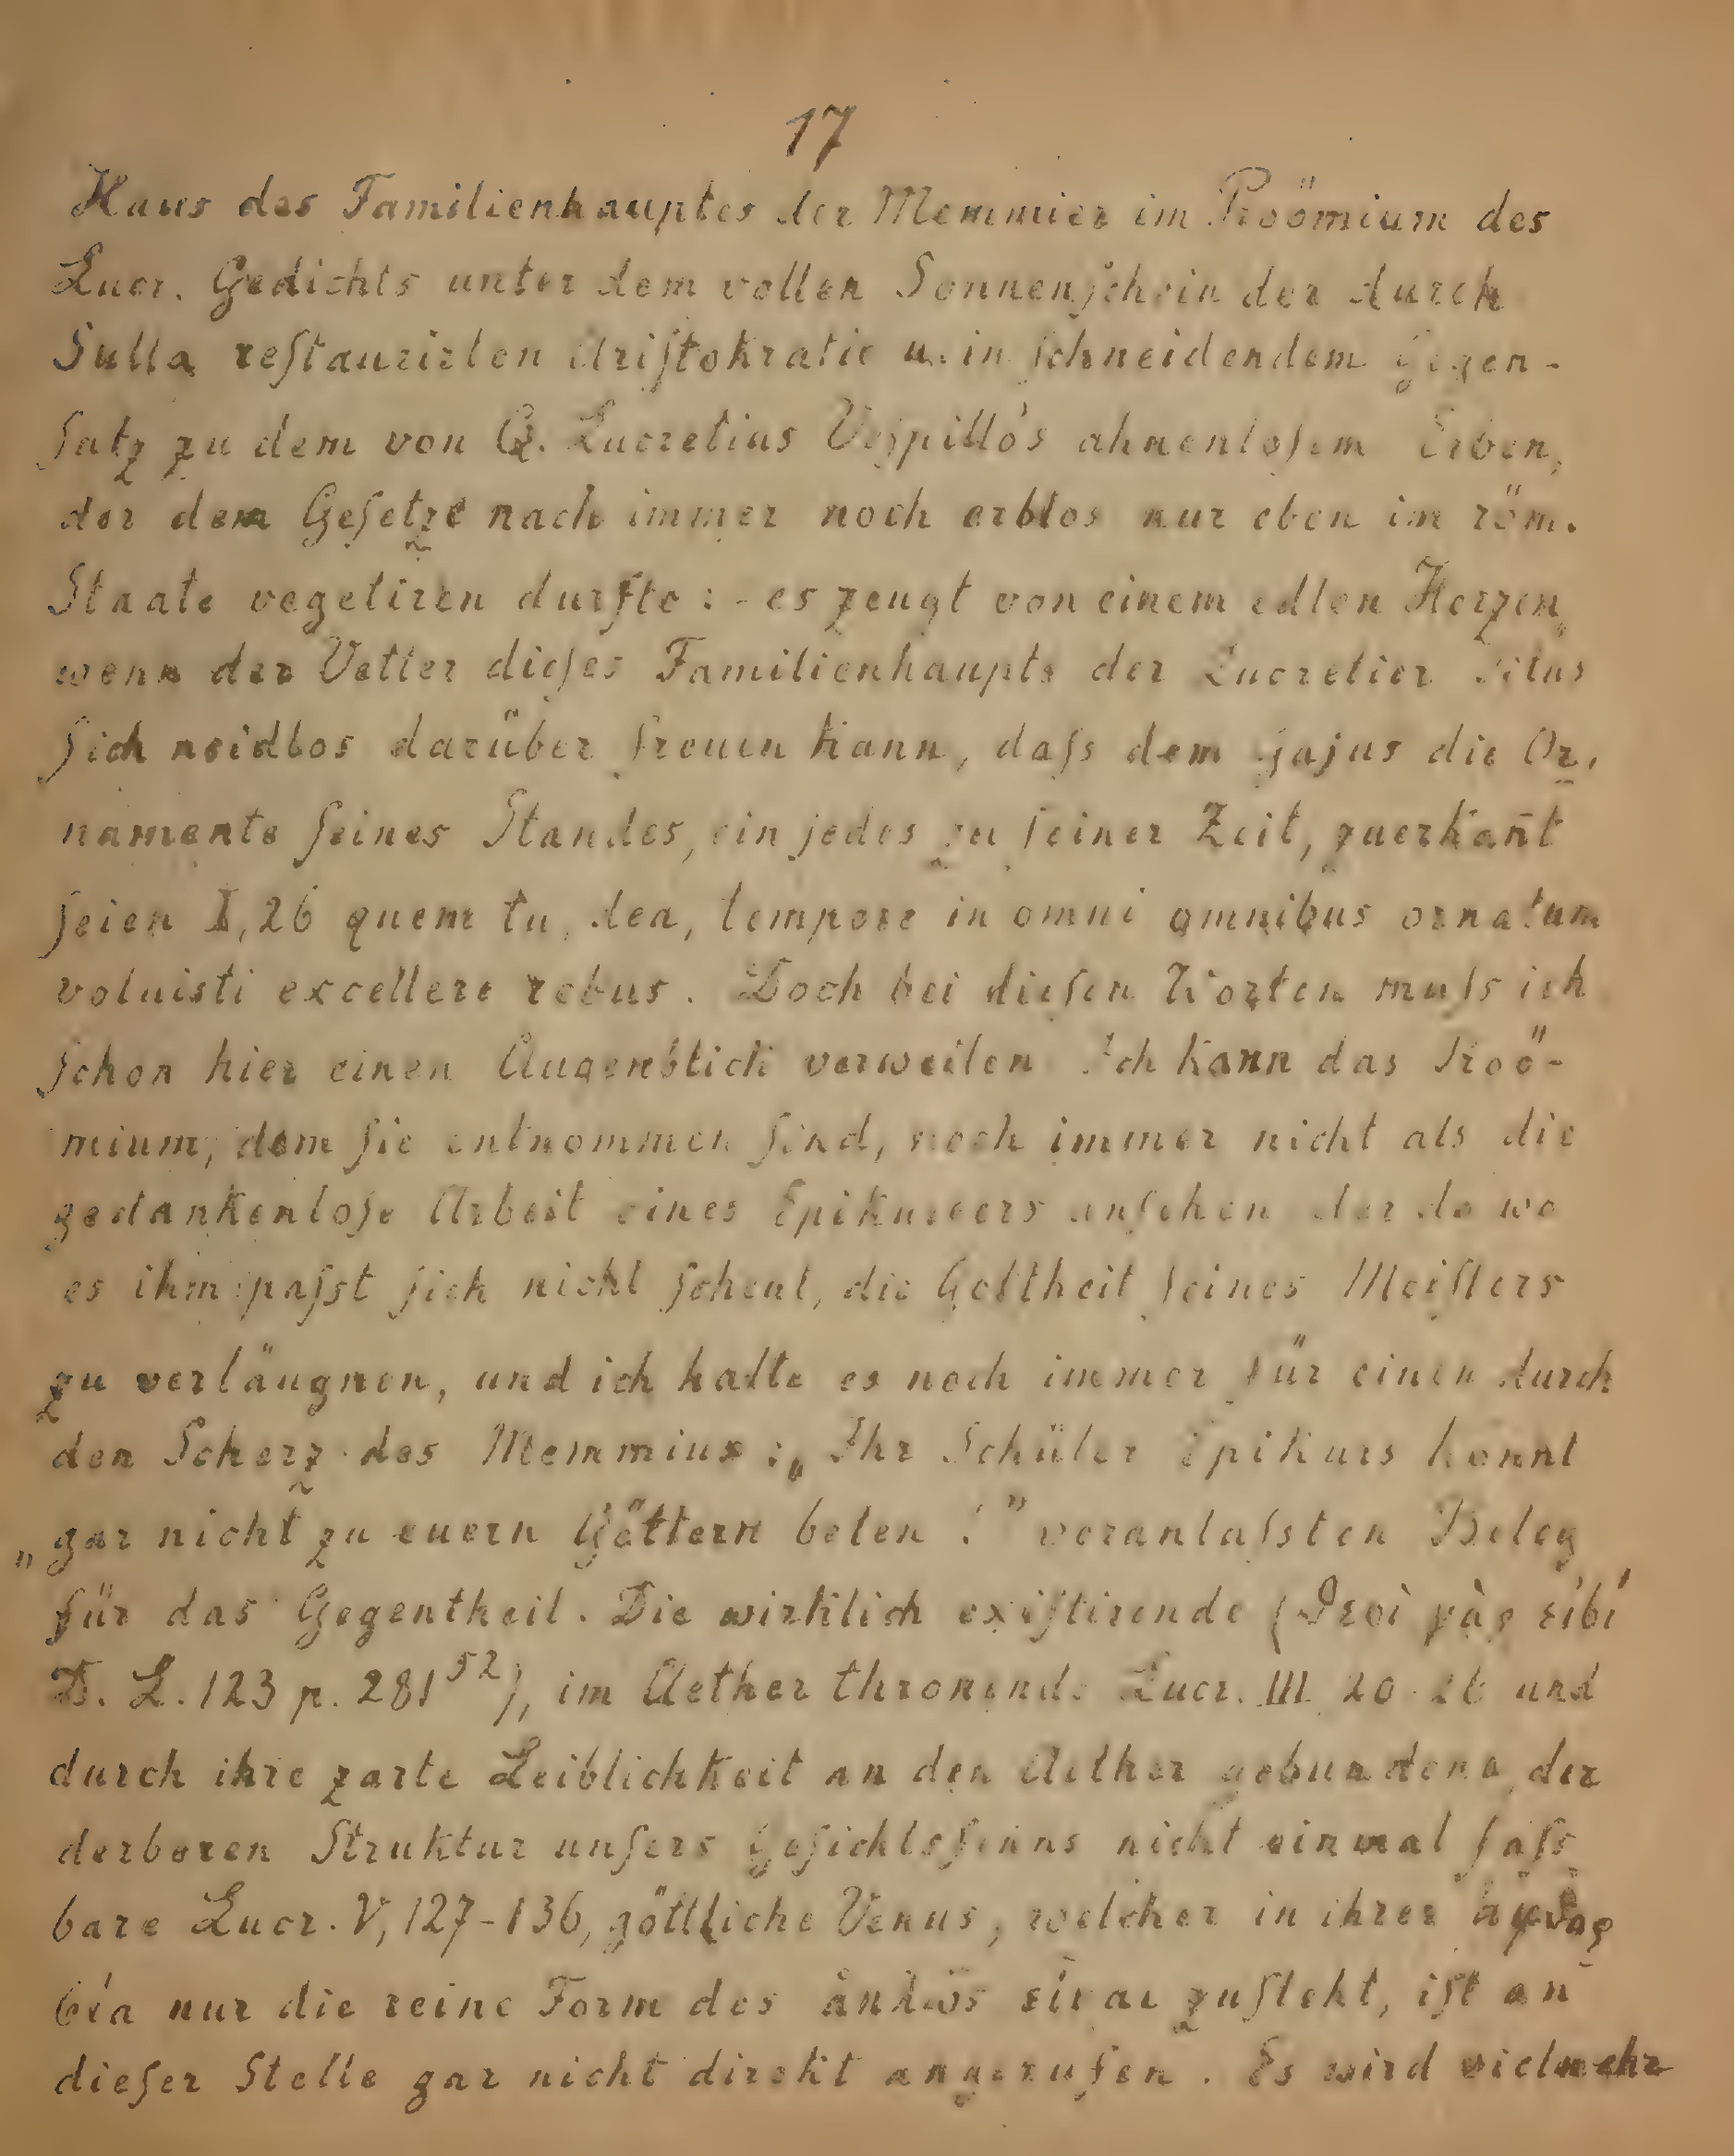 17
Haus des Familienhauptes der Memmier im Proömium des
Lucr. Gedichts unter dem vollen Sonnenſchein der durch
Sulla reſtaurirten Ariſtokratie u. in ſchneidendem Gegen-
ſatz zu dem von Q. Lucretius Veſpillo's ahnenloſem Erben,
der dem Geſetze nach immer noch erblos nur eben im röm.
Staate vegetiren durfte : - es zeugt von einem edlen Herzen,
wenn der Vetter dieſes Familienhaupts der Lucretier Titus
ſich neidlos darüber freuen kann, daſs dem Gajus die Or-
namente ſeines Standes, ein jedes zu ſeiner Zeit, zuerkañt
ſeien I, 26 quem tu, dea, tempore in omni omnibus ornatum
voluisti excellere rebus. Doch bei dieſen Worten muſs ich
ſchon hier einen Augenblick verweilen Ich kann das Proö-
mium, dem ſie entnommen ſind, noch immer nicht als die
gedankenloſe Arbeit eines Epikureers anſehen der da wo
es ihm paſst ſich nicht ſcheut, die Gottheit ſeines Meiſters
zu verläugnen, und ich halte es noch immer für einen durch
den Scherz des Memmius : „Ihr Schüler Epikurs könnt
„gar nicht zu euern Göttern beten !" veranlaſsten Beleg
für das Gegentheil. Die wirklich exiſtirende (θεοὶ γὰρ εἰσί
D. L. 123 p. 281⁵²), im Aether thronende Lucr. III 20-26 und
durch ihre zarte Leiblichkeit an den Aether gebundene, der
derberen Struktur unſers Geſichtsſinns nicht einmal faſs-
bare Lucr. V, 127-136, göttliche Venus, welcher in ihrer ἀφθαρ-
σία nur die reine Form des ἁπλῶς εἶναι zuſteht, iſt an
dieſer Stelle gar nicht direkt angerufen. Es wird vielmehr